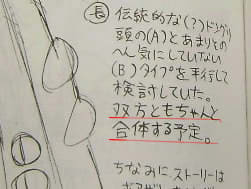 長 伝統的な(?)ドリル
頭の(A)とあまりもの
へん気にしていない
(B)タイプを平行して
検討していた。
双方ともちゃんと
合体する予定。
ちなみに、ストーリーは